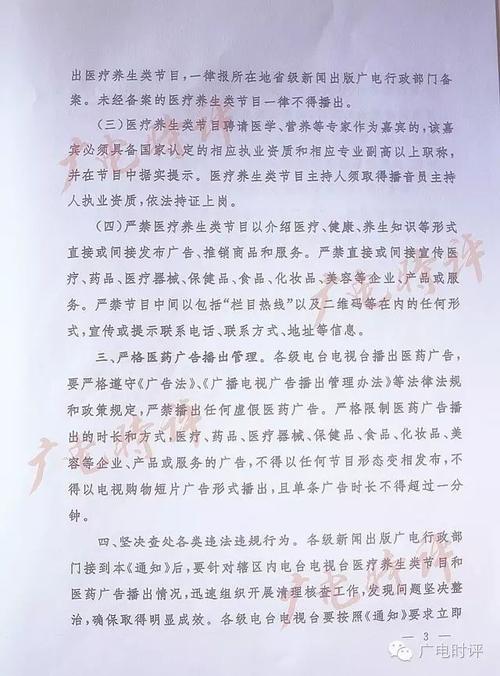 出医疗养生类节目，一律报所在地省级新闻出版广电行政部门备
案。未经备案的医疗养生类节目一律不得播出。
（三）医疗养生类节目聘请医学、营养等专家作为嘉宾的，该嘉
宾必须具备国家认定的相应执业资质和相应专业副高以上职称，
并在节目中据实提示。医疗养生类节目主持人须取得播音员主持
人执业资质，依法持证上岗。
（四）严禁医疗养生类节目以介绍医疗、健康、养生知识等形式
直接或间接发布广告、推销商品和服务。严禁直接或间接宣传医
疗、药品、医疗器械、保健品、食品、化妆品、美容等企业、产品或服
务。严禁节目中间以包括“栏目热线”以及二维码等在内的任何形
式，宣传或提示联系电话、联系方式、地址等信息。
三、严格医药广告播出管理。各级电台电视台播出医药广告，
要严格遵守《广告法》、《广播电视广告播出管理办法》等法律法规
和政策规定，严禁播出任何虚假医药广告。严格限制医药广告播
出的时长和方式，医疗、药品、医疗器械、保健品、食品、化妆品、美
容等企业、产品或服务的广告，不得以任何节目形态变相发布，不
得以电视购物短片广告形式播出，且单条广告时长不得超过一分
钟。
四、坚决查处各类违法违规行为。各级新闻出版广电行政部
门接到本《通知》后，要针对辖区内电台电视台医疗养生类节目和
医药广告播出情况，迅速组织开展清理核查工作，发现问题坚决整
治，确保取得明显成效。各级电台电视台要按照《通知》要求立即
— 3 —
广电时评
广电时评
广电时评
广电时评
广电时评
广电时评